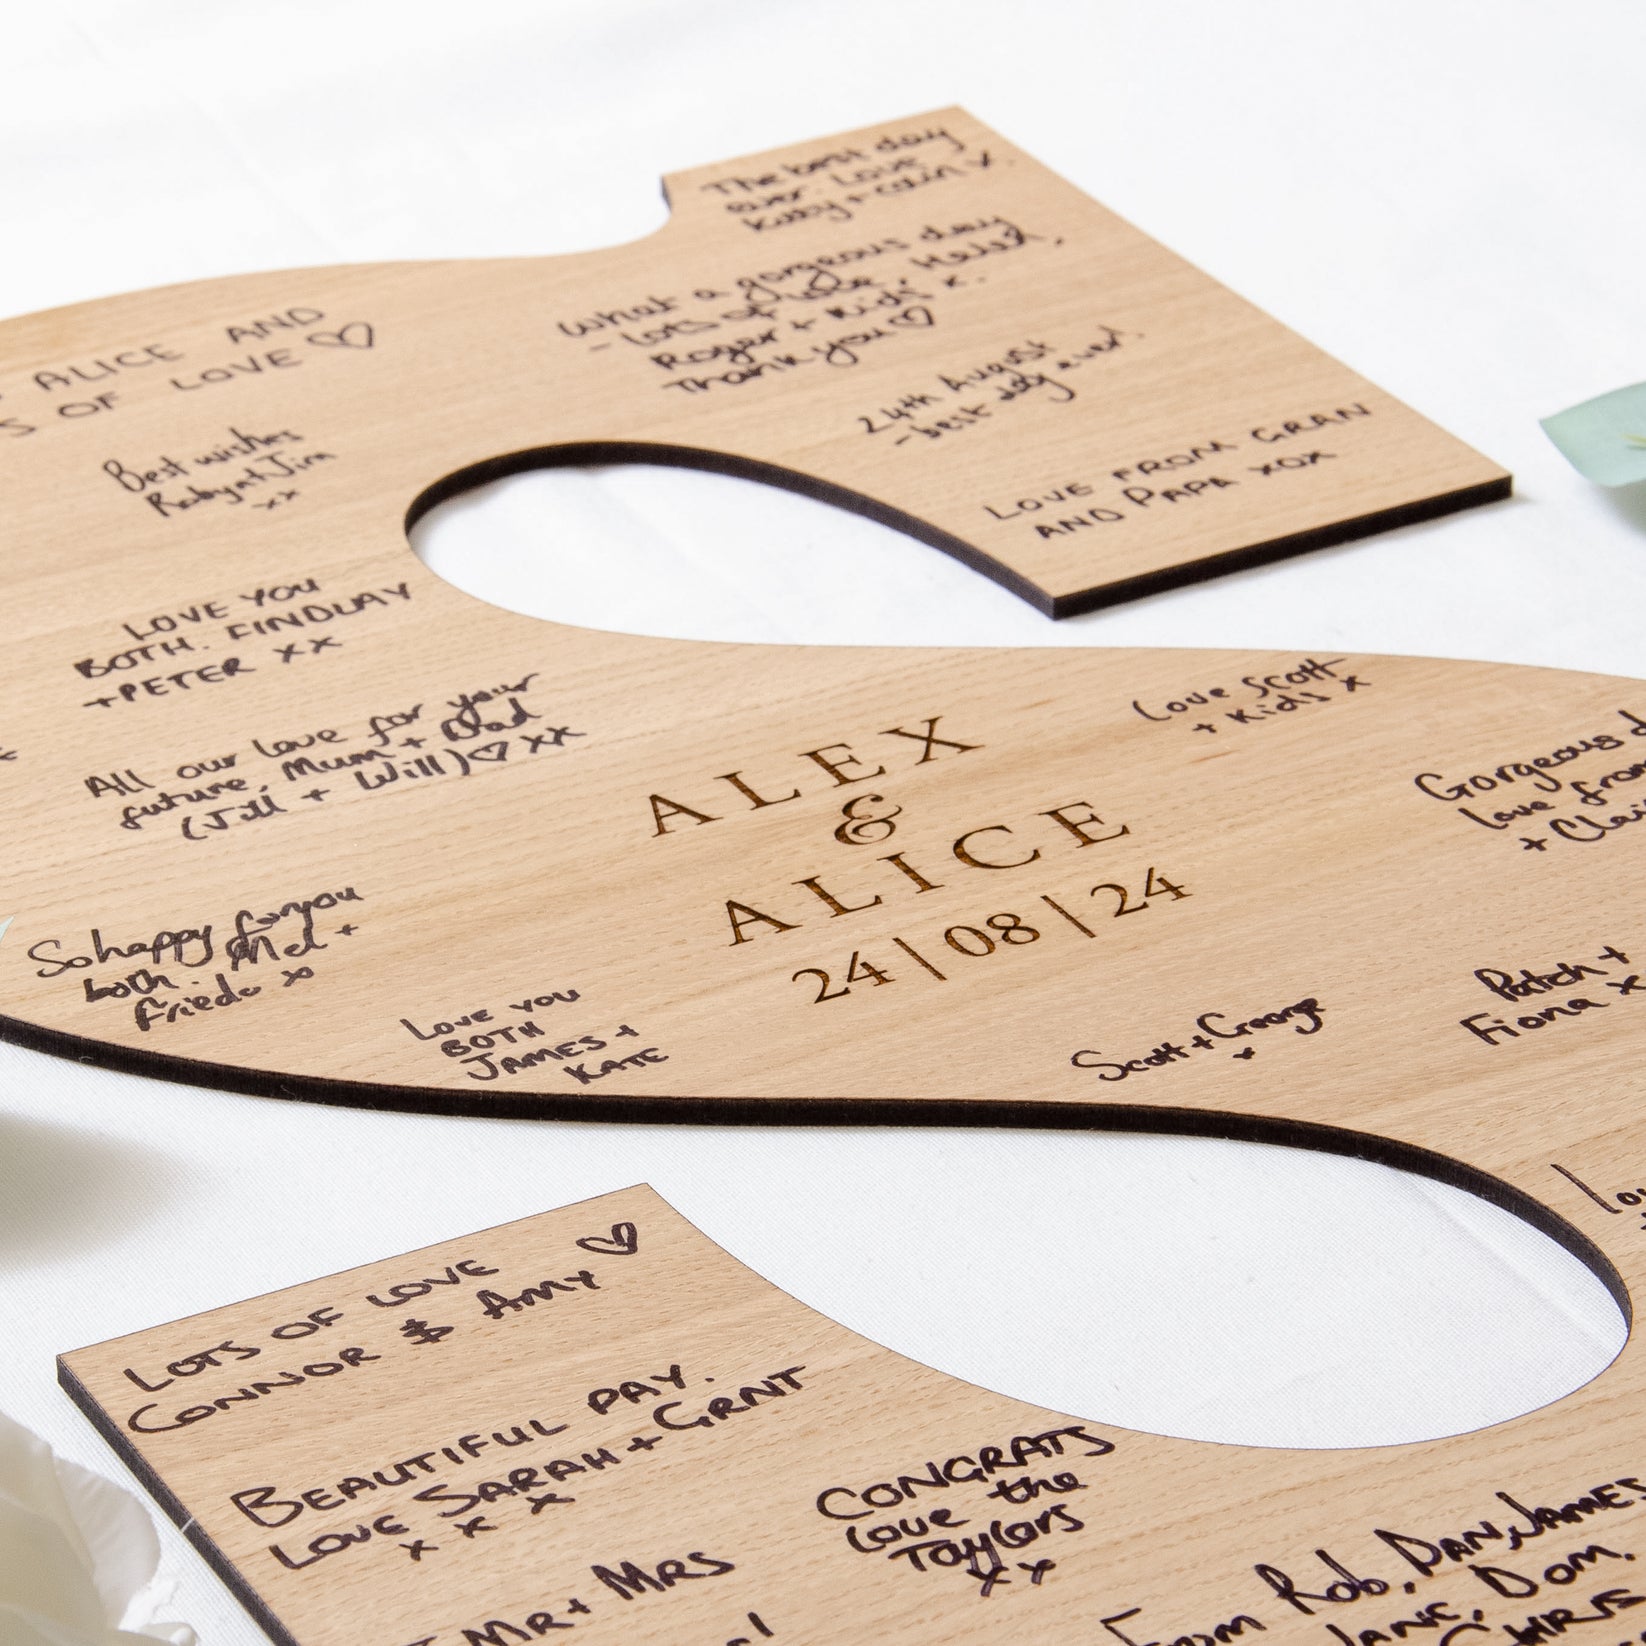 The best day
ever. Love
Katy + Colin x.
What a gorgeous day
- Lots of love, Helen,
Roger + Kids x.
Thank you ♡
24th August
- best day ever!
LOVE FROM GRAN
AND PAPA xox
ALICE AND
S OF LOVE ♡
Best wishes
Roby + Jim
xx
LOVE YOU
BOTH. FINDLAY
+ PETER xx
All our love for your
future, Mum + Dad
(Jill + Will) ♡ xx
So happy for you
both. Mel +
Frieda x
LOVE YOU
BOTH
JAMES +
KATE
ALEX
&
ALICE
24 | 08 | 24
Love Scott
+ Kids x
Gorgeous d
Love from
+ Clai
Patch +
Fiona x
Scott + George
x
LOTS OF LOVE
CONNOR & AMY ♡
BEAUTIFUL DAY.
LOVE SARAH + GRNT
x x x
CONGRATS
Love the
Taylors
xx
MR + MRS
From Rob, DAN, JAMES
JANE, Dom.
CHRIS